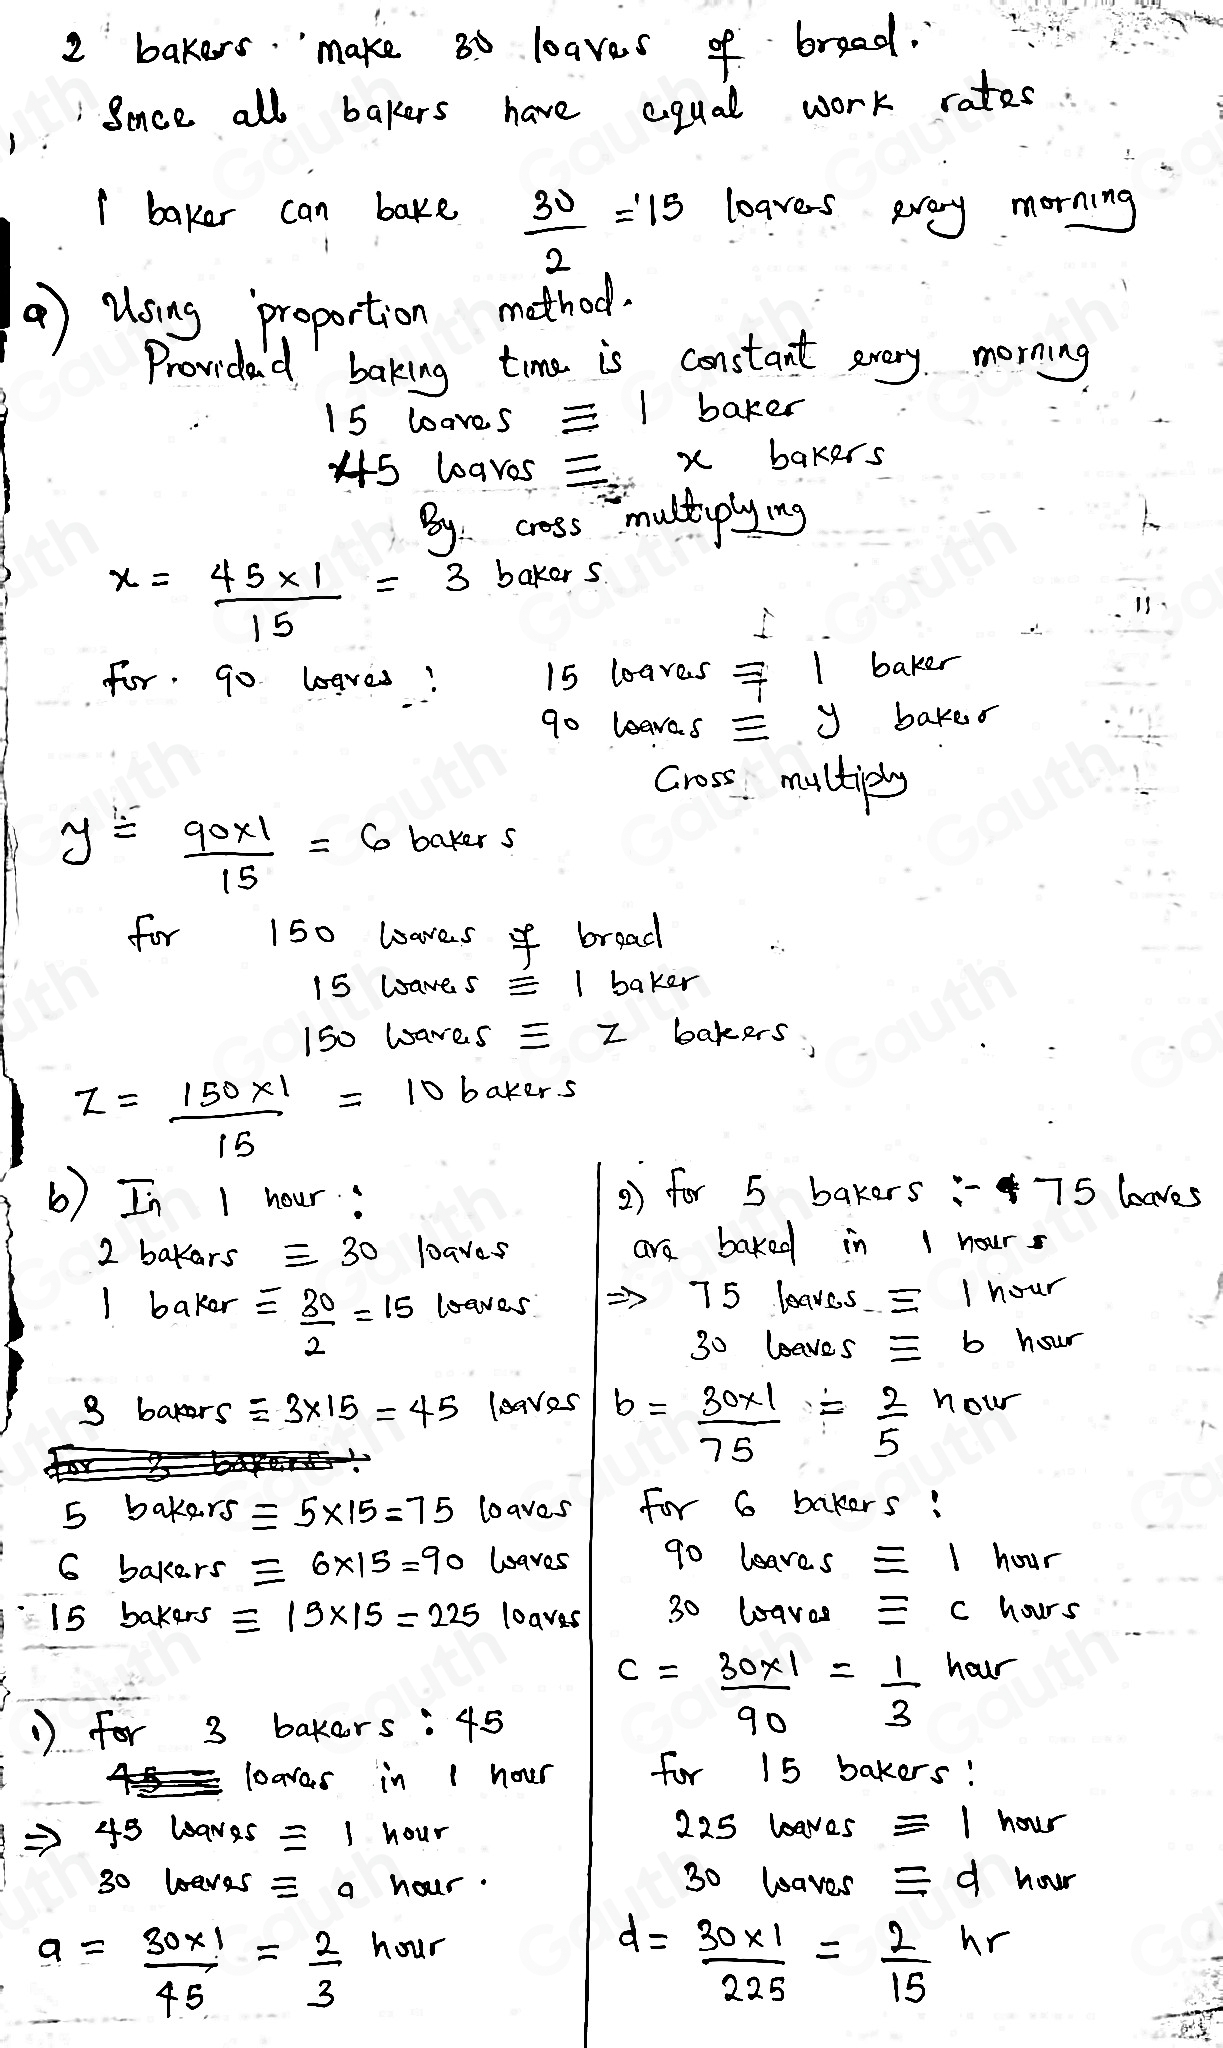 2 bakers make 30 loaves of bread.
Since all bakers have equal work rates
1 baker can bake 30/2 = 15 loaves every morning
a) Using proportion method.
Provided baking time is constant every morning
15 loaves ≡ 1 baker
45 loaves ≡ x bakers
By cross multiplying
x = 45×1/15 = 3 bakers
for 90 loaves : 15 loaves ≡ 1 baker
90 loaves ≡ y baker
Cross multiply
y = 90×1/15 = 6 bakers
for 150 loaves of bread
15 loaves ≡ 1 baker
150 loaves ≡ z bakers
z = 150×1/15 = 10 bakers
b) In 1 hour :
2 bakers ≡ 30 loaves
1 baker ≡ 30/2 = 15 loaves
3 bakers ≡ 3×15 = 45 loaves
for 3 bakers :
5 bakers ≡ 5×15=75 loaves
6 bakers ≡ 6×15=90 loaves
15 bakers ≡ 15×15=225 loaves
1) for 3 bakers : 45
45 loaves in 1 hour
⇒ 45 loaves ≡ 1 hour
30 loaves ≡ a hour.
a = 30×1/45 = 2/3 hour
2) for 5 bakers :- 75 loaves
are baked in 1 hours
⇒ 75 loaves ≡ 1 hour
30 loaves ≡ b hour
b = 30×1/75 = 2/5 hour
for 6 bakers :
90 loaves ≡ 1 hour
30 loaves ≡ c hours
c = 30×1/90 = 1/3 hour
for 15 bakers :
225 loaves ≡ 1 hour
30 loaves ≡ d hour
d = 30×1/225 = 2/15 hr